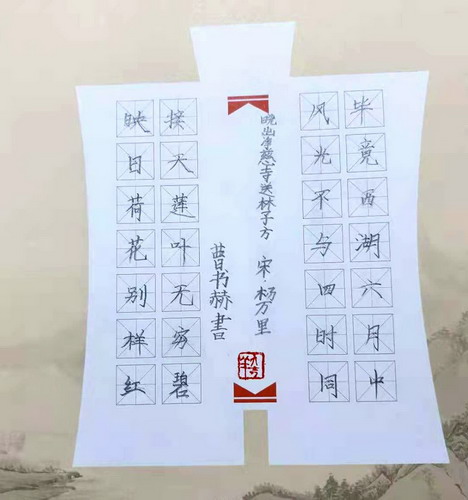 毕竟西湖六月中
风光不与四时同
晓出净慈寺送林子方 宋 杨万里
接天莲叶无穷碧
映日荷花别样红
书赫書